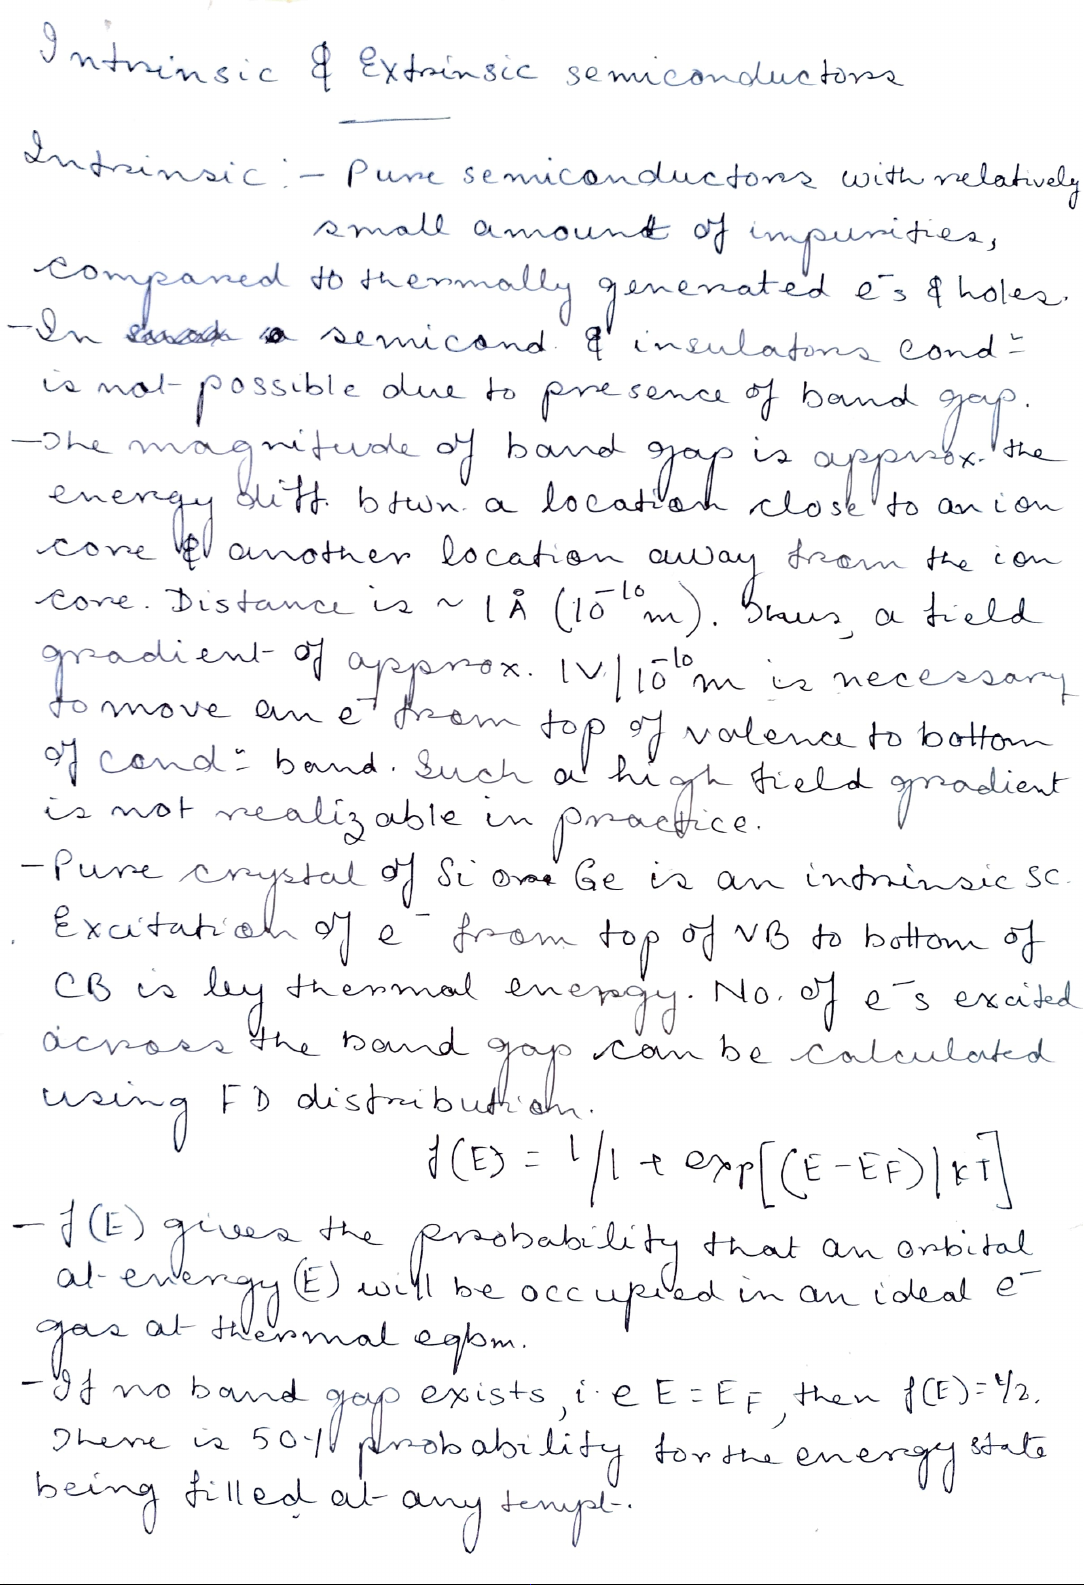 Intrinsic & Extrinsic semiconductors
Intrinsic :- Pure semiconductors with relatively
small amount of impurities,
compared to thermally generated e⁻s & holes.
- In semicond. & insulators condⁿ
is not possible due to presence of band gap.
- The magnitude of band gap is approx. the
energy diff. btwn. a location close to an ion
core & another location away from the ion
core. Distance is ~ 1 Å (10⁻¹⁰m). Thus, a field
gradient of approx. 1V/10⁻¹⁰m is necessary
to move an e⁻ from top of valence to bottom
of condⁿ band. Such a high field gradient
is not realizable in practice.
- Pure crystal of Si or Ge is an intrinsic SC.
Excitation of e⁻ from top of VB to bottom of
CB is by thermal energy. No. of e⁻s excited
across the band gap can be calculated
using FD distribution.
f(E) = 1/1 + exp[(E-EF)/kT]
- f(E) gives the probability that an orbital
at energy (E) will be occupied in an ideal e⁻
gas at thermal eqbm.
- If no band gap exists, i.e E = EF, then f(E)=1/2.
There is 50% probability for the energy state
being filled at any tempt.